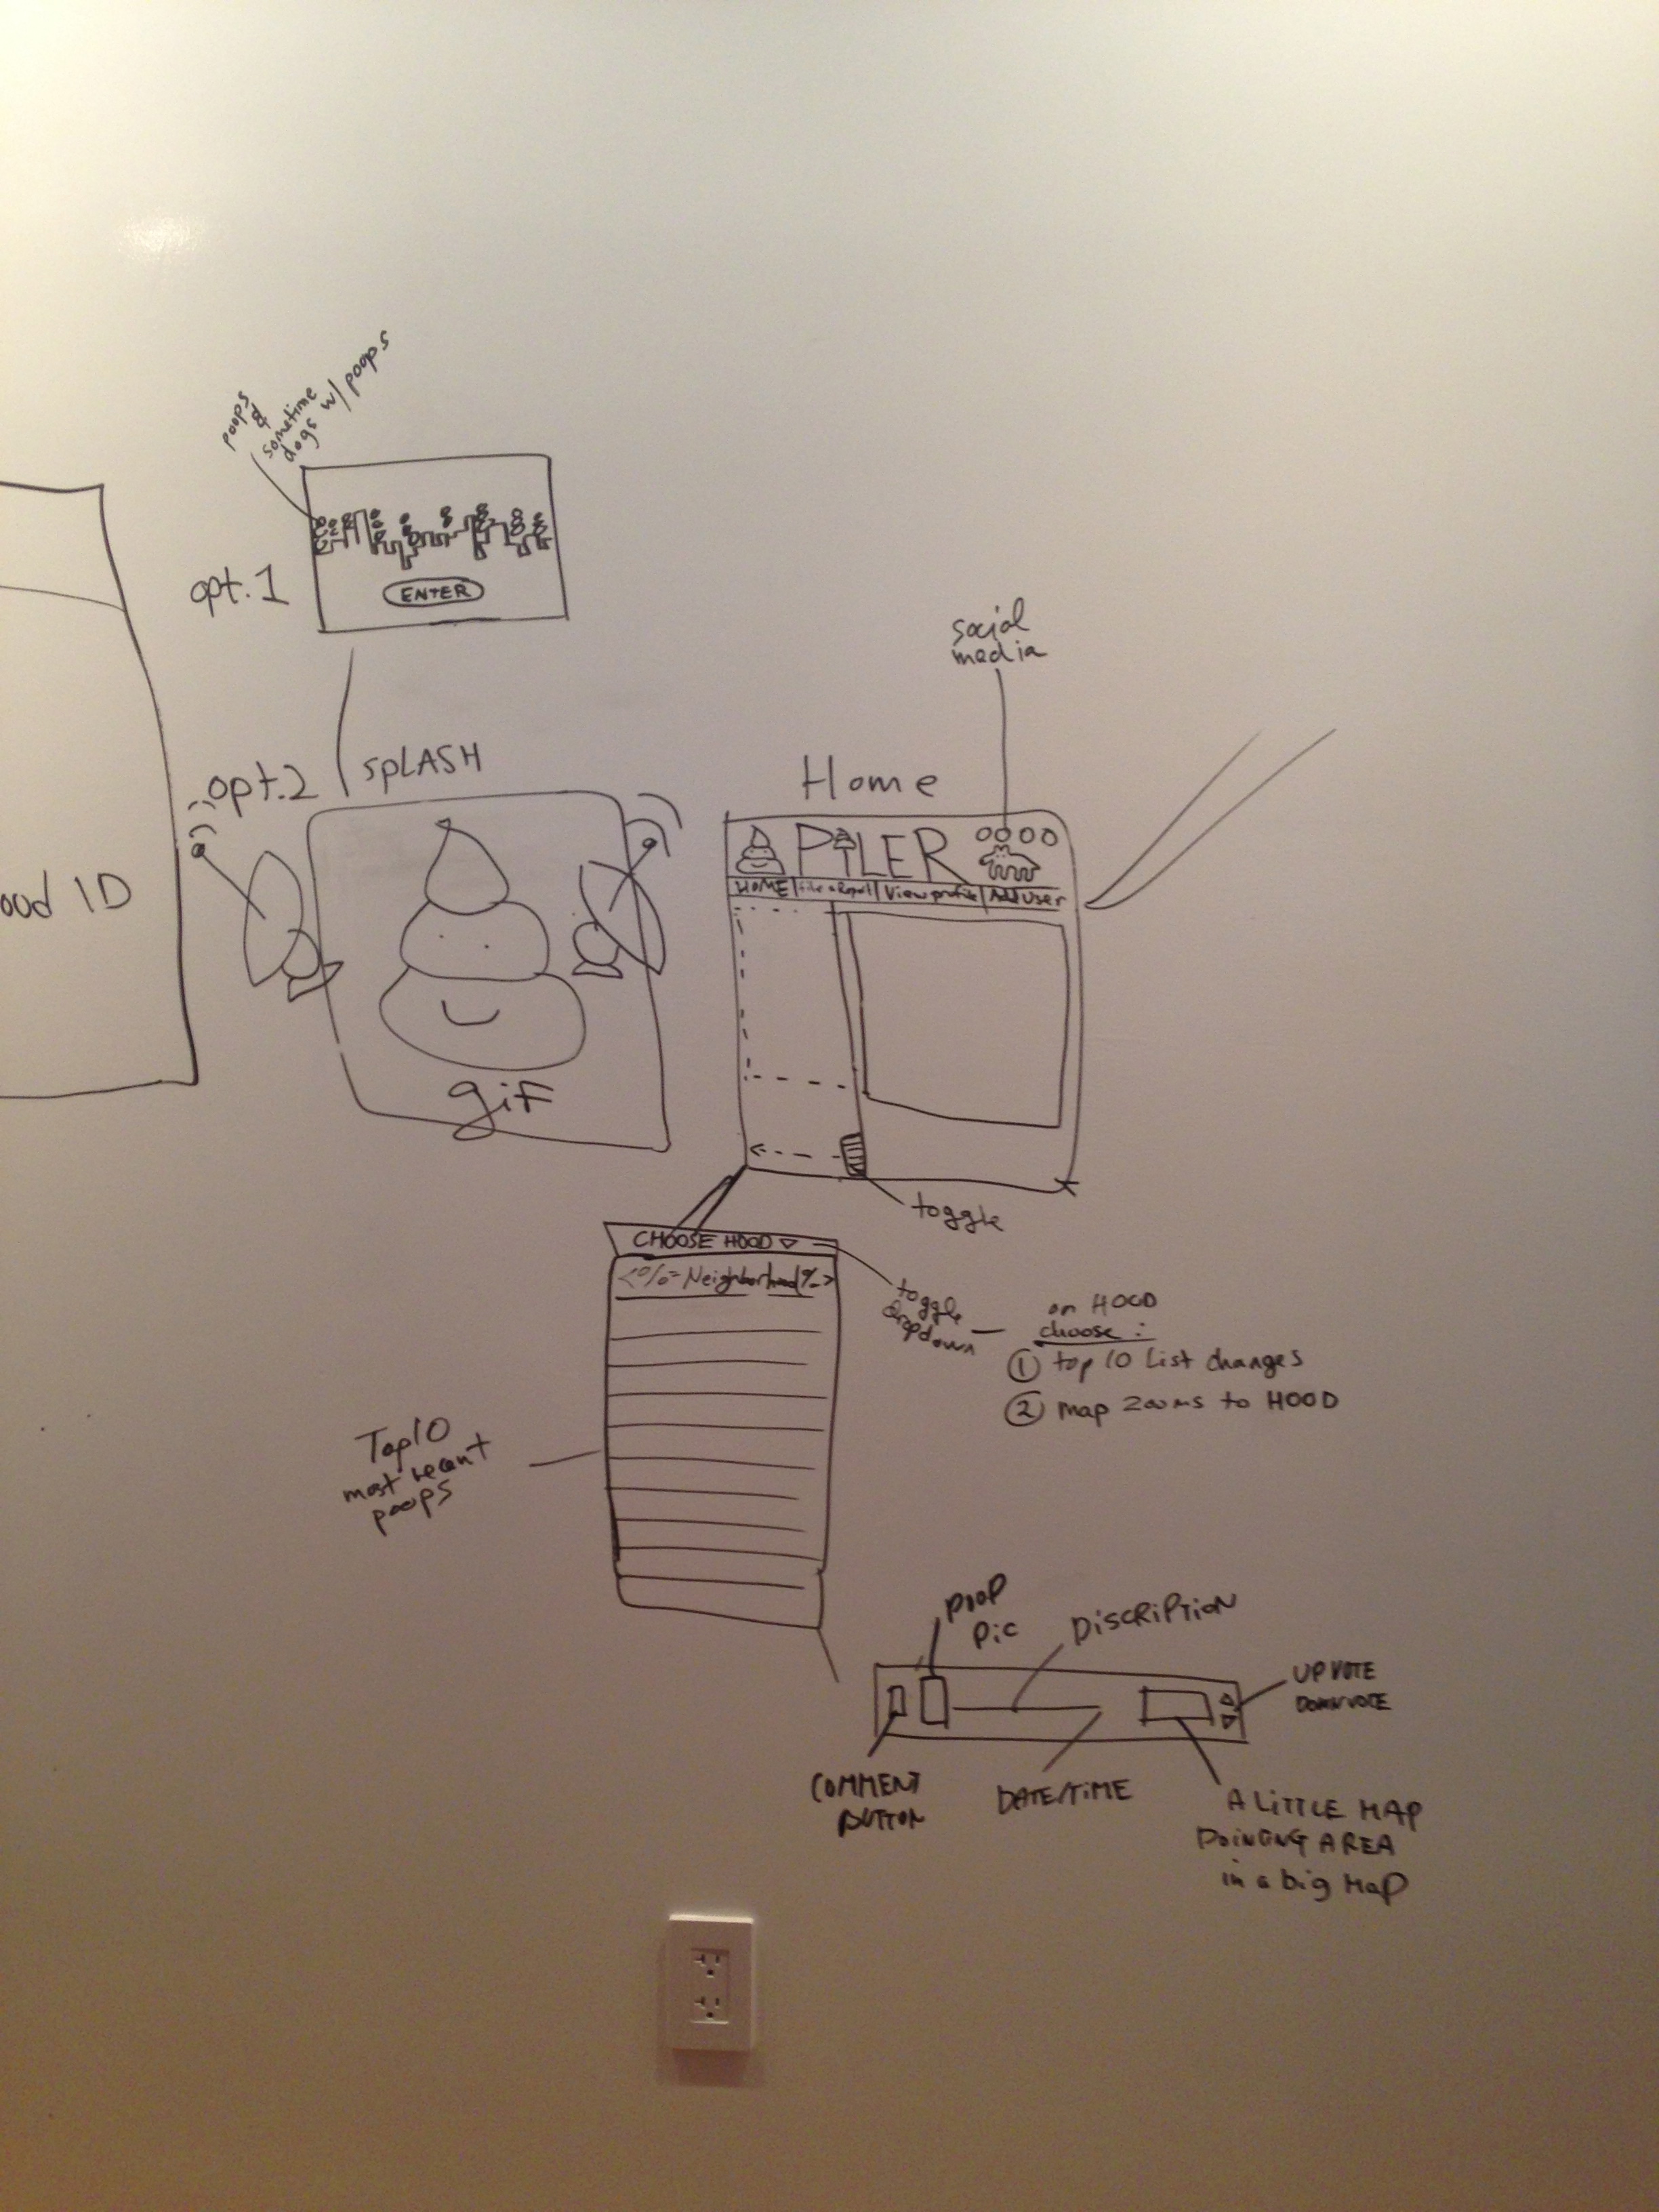 poops
&
sometime
dogs w/ poops
opt.1
ENTER
opt.2
SPLASH
gif
ood ID
social
media
Home
PiLER
HOME | file a Report | View profile | Add User
toggle
CHOOSE HOOD
<%= Neighborhood %>
toggle
dropdown
on HOOD
choose:
1 top 10 List changes
2 map zooms to HOOD
Top10
most recent
poops
POOP
Pic
DiSCRiPTiON
UPVOTE
DOWNVOTE
COMMENT
BUTTON
DATE/TiME
A LiTTLE MAP
POiNTiNG AREA
in a big Map